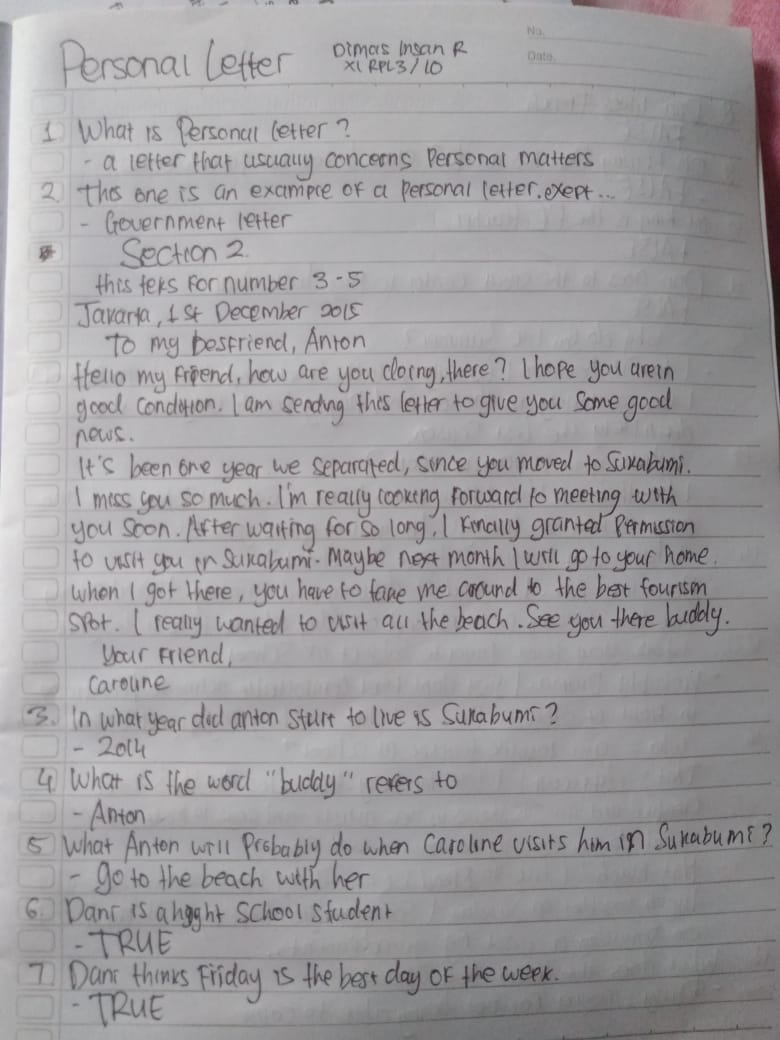 No.
Date.
Personal Letter
Dimas Insan R
XI RPL3/10
1. What is Personal letter?
- a letter that usually concerns Personal matters
2. this one is an example of a personal letter. exept...
- Government letter
Section 2
this teks for number 3-5
Jakarta, 1st December 2015
To my bestfriend, Anton
Hello my friend, how are you doing, there? I hope you are in
good condition. I am sending this letter to give you some good
news.
It's been one year we separated, since you moved to Sukabumi.
I miss you so much. I'm really looking forward to meeting with
you soon. After waiting for so long, I finally granted Permission
to visit you in Sukabumi. Maybe next month I will go to your home.
when I got there, you have to take me around to the best tourism
spot. I really wanted to visit all the beach. See you there buddy.
Your Friend,
Caroline
3. In what year did anton start to live is Sukabumi?
- 2014
4 What is the word "buddy" refers to
- Anton
5 What Anton will Probably do when Caroline visits him in Sukabumi?
- go to the beach with her
6. Dani is a hight school student
- TRUE
7. Dani thinks Friday is the best day of the week.
- TRUE